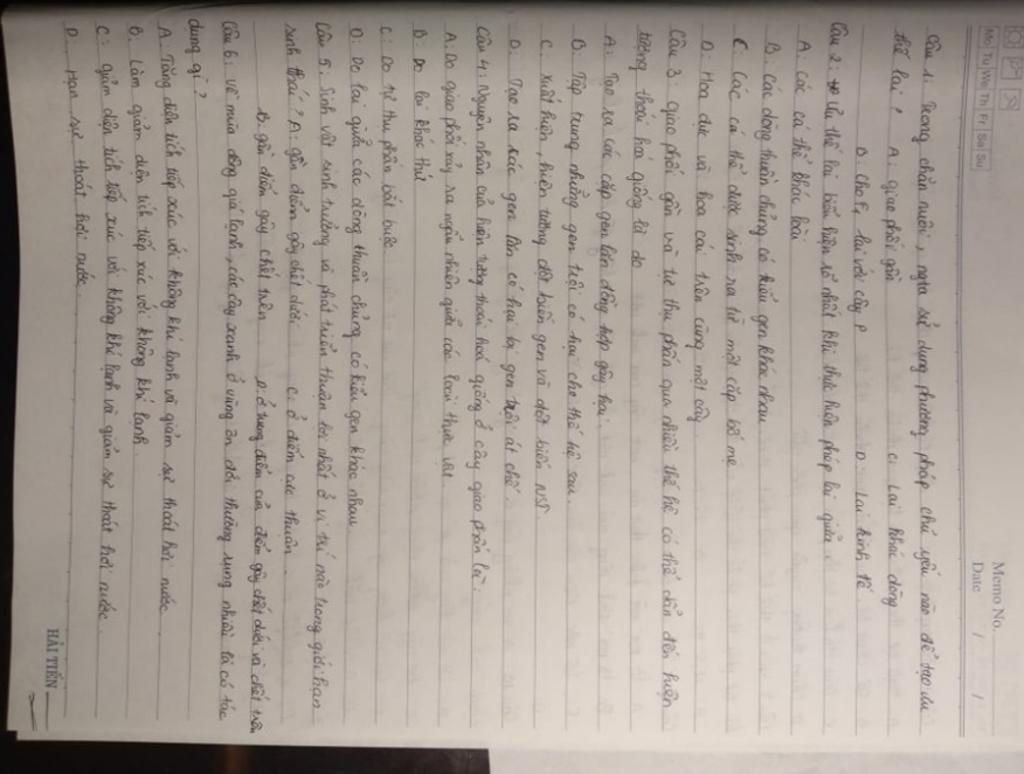 Memo No.
Mo Tu We Th Fr Sa Su
Date / /
Câu 1: Trong chăn nuôi, ngta sử dụng phương pháp chủ yếu nào để tạo ưu
thế lai? A: giao phối gần C: Lai khác dòng
B: cho F1 lai với cây P D: Lai kinh tế
Câu 2: Ưu thế lai biểu hiện rõ nhất khi thực hiện phép lai giữa
A: Các cá thể khác loài
B: Các dòng thuần chủng có kiểu gen khác nhau
C: Các cá thể được sinh ra từ một cặp bố mẹ
D: Hoa đực và hoa cái trên cùng một cây
Câu 3: giao phối gần và tự thụ phấn qua nhiều thế hệ có thể dẫn đến hiện
tượng thoái hoá giống là do
A: Tạo ra các cặp gen lặn đồng hợp gây hại.
B: Tập trung những gen trội có hại cho thế hệ sau.
C: Xuất hiện, hiện tượng đột biến gen và đột biến NST.
D: Tạo ra các gen lặn có hại bị gen trội át chế
Câu 4: Nguyên nhân của hiện tượng thoái hoá giống ở cây giao phấn là:
A: Do giao phối xảy ra ngẫu nhiên giữa các loài thực vật
B: Do lai khác thứ
C: Do tự thụ phấn bắt buộc
D: Do lai giữa các dòng thuần chủng có kiểu gen khác nhau.
Câu 5: Sinh vật sinh trưởng và phát triển thuận lợi nhất ở vị trí nào trong giới hạn
sinh thái? A: gần điểm gây chết dưới C: ở điểm cực thuận.
B: gần điểm gây chết trên D: ở trung điểm của điểm gây chết dưới và chết trên
Câu 6: Về mùa đông giá lạnh, các cây xanh ở vùng ôn đới thường rụng nhiều lá có tác
dụng gì?
A: Tăng diện tích tiếp xúc với không khí lạnh và giảm sự thoát hơi nước.
B: Làm giảm diện tích tiếp xúc với không khí lạnh.
C: giảm diện tích tiếp xúc với không khí lạnh và giảm sự thoát hơi nước.
D: Hạn sự thoát hơi nước.
HẢI TIẾN